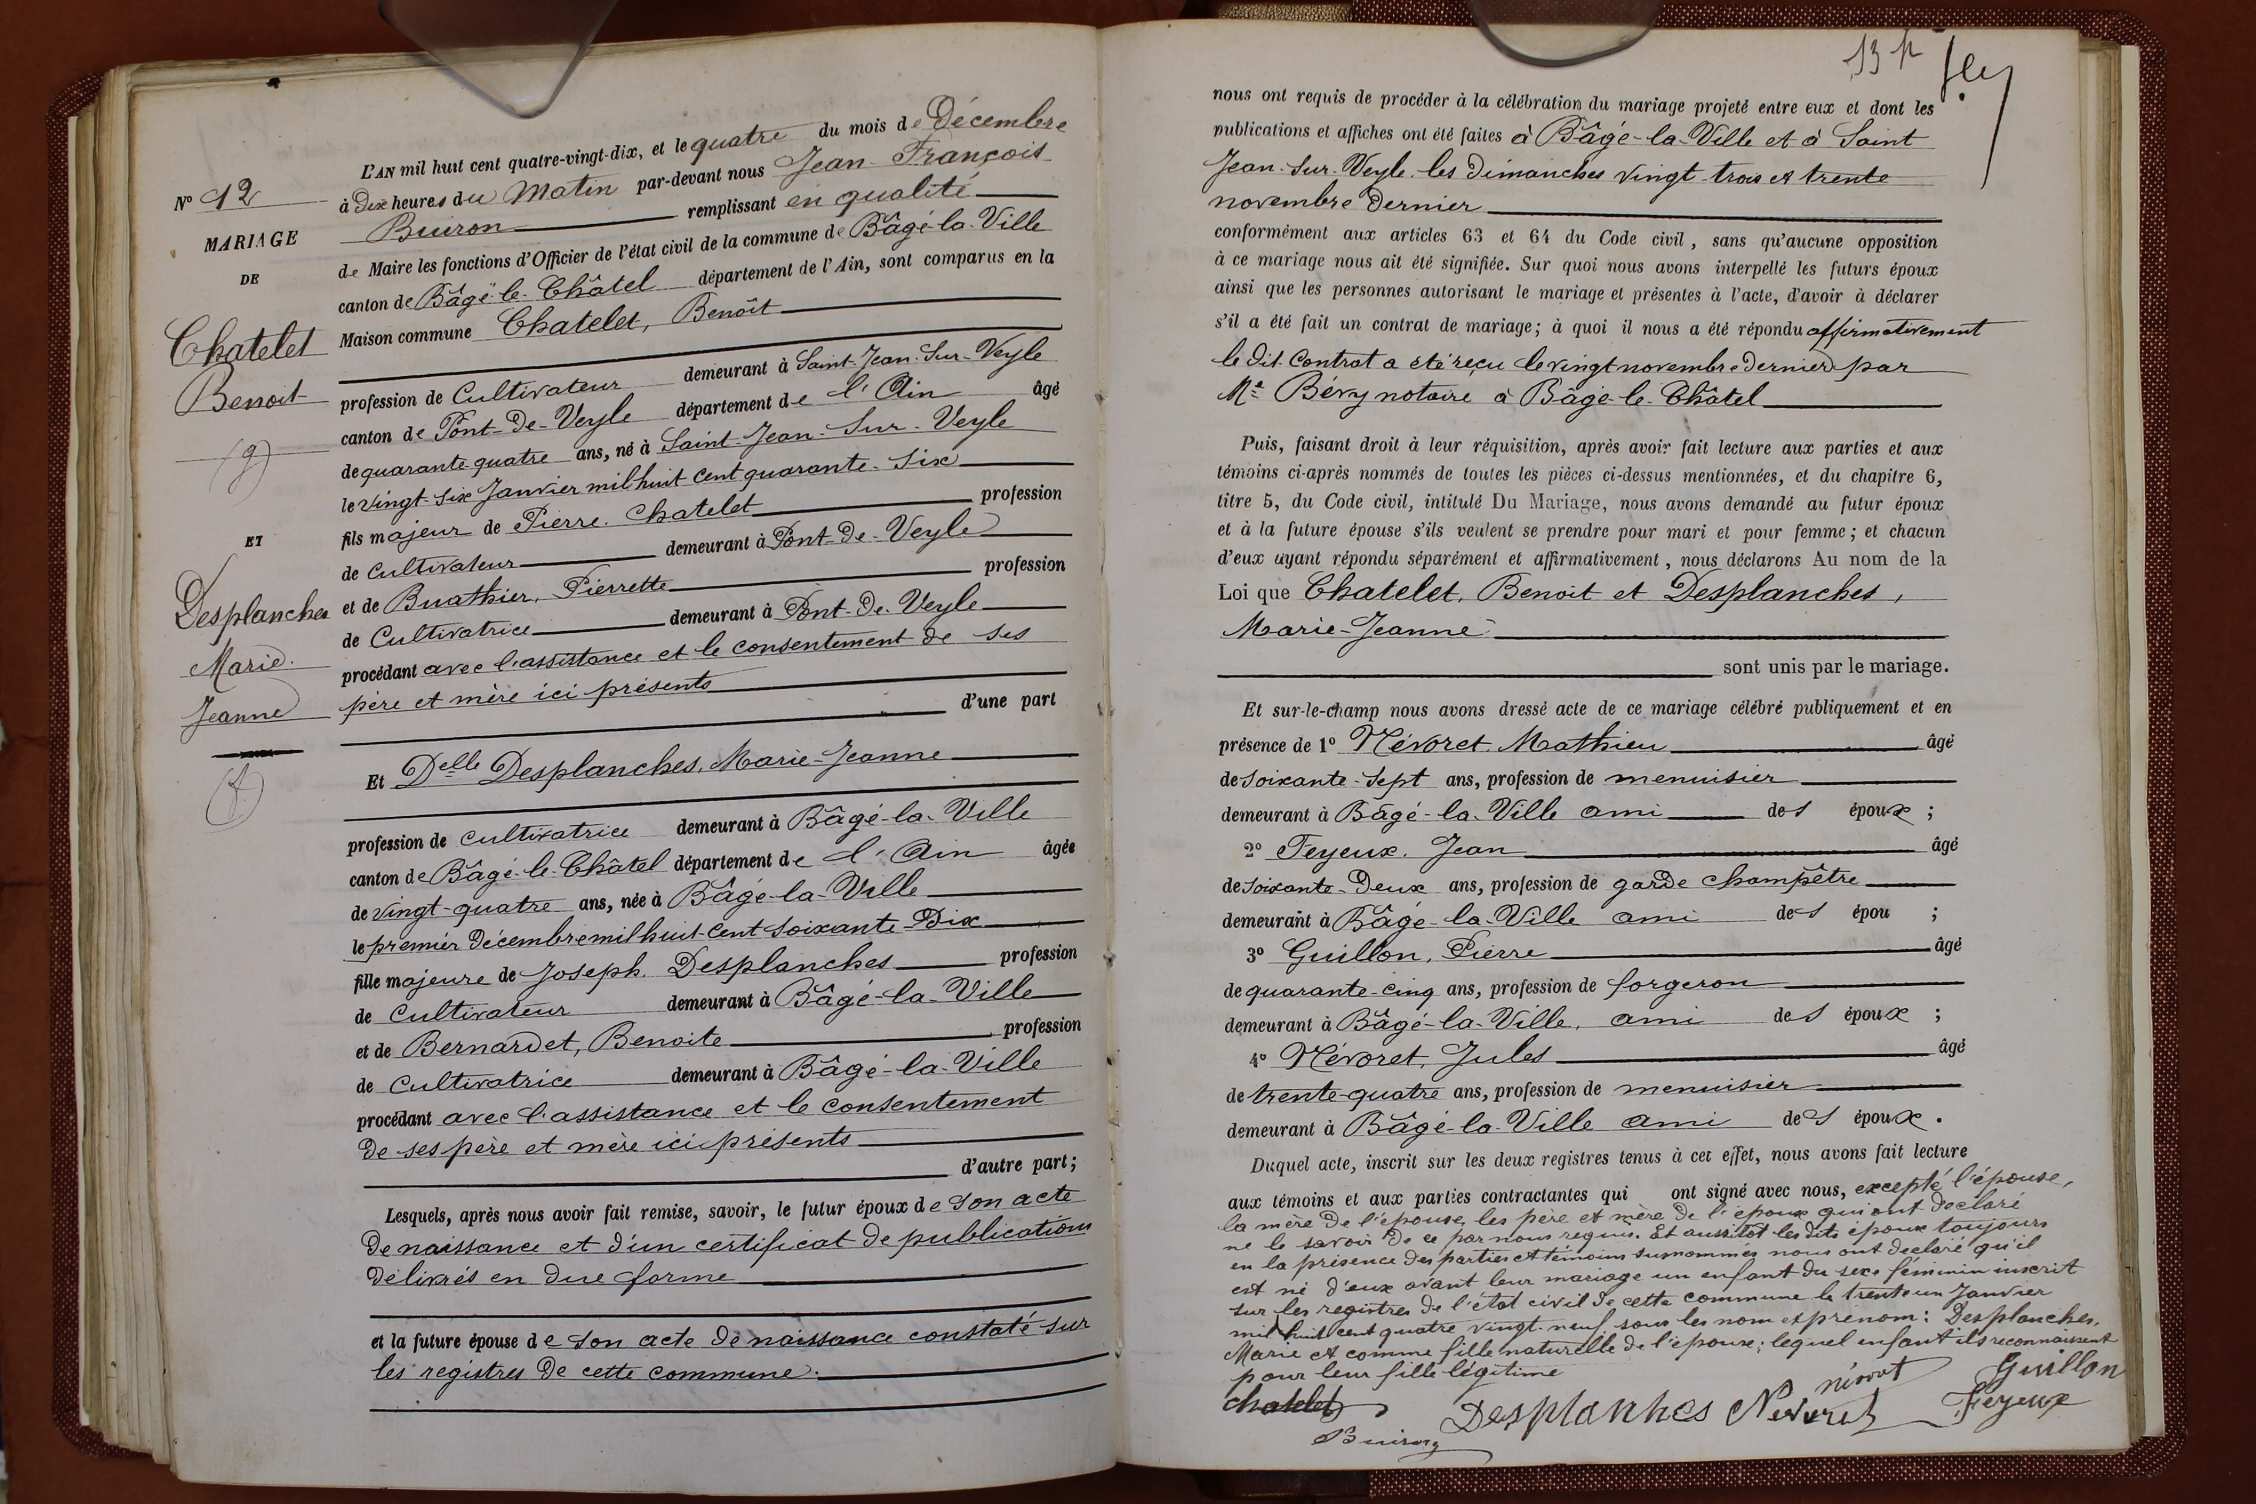 L'AN mil huit cent quatre-vingt-dix, et le quatre du mois de Décembre
à Dix heures du Matin par-devant nous Jean-François
Buiron remplissant en qualité
de Maire les fonctions d'Officier de l'état civil de la commune de Bâgé-la-Ville
canton de Bâgé-le-Châtel département de l'Ain, sont comparus en la
Maison commune Chatelet, Benoît
profession de Cultivateur demeurant à Saint-Jean-Sur-Veyle
canton de Pont-De-Veyle département de l'Ain âgé
de quarante quatre ans, né à Saint-Jean-Sur-Veyle
le vingt-six Janvier mil huit cent quarante-six
fils majeur de Pierre Chatelet profession
de Cultivateur demeurant à Pont-De-Veyle
et de Buathier, Pierrette profession
de Cultivatrice demeurant à Pont-De-Veyle
procédant avec l'assistance et le consentement de ses
père et mère ici présents
d'une part
Et Delle Desplanches, Marie-Jeanne
profession de cultivatrice demeurant à Bâgé-la-Ville
canton de Bâgé-le-Châtel département de l'Ain âgée
de vingt-quatre ans, née à Bâgé-la-Ville
le premier Décembre mil huit-cent soixante-Dix
fille majeure de Joseph Desplanches profession
de Cultivateur demeurant à Bâgé-la-Ville
et de Bernardet, Benoite profession
de Cultivatrice demeurant à Bâgé-la-Ville
procédant avec l'assistance et le consentement
De ses père et mère ici présents
d'autre part;
Lesquels, après nous avoir fait remise, savoir, le futur époux de son acte
De naissance et d'un certificat de publications
Délivrés en due forme
et la future épouse de son acte de naissance constaté sur
les registres De cette commune.
No 12
MARIAGE
DE
Chatelet
Benoit
(g)
ET
Desplanches
Marie
Jeanne
(f)
13
nous ont requis de procéder à la célébration du mariage projeté entre eux et dont les
publications et affiches ont été faites à Bâgé-la-Ville et à Saint
Jean-Sur-Veyle les Dimanches vingt-trois et trente
novembre Dernier
conformément aux articles 63 et 64 du Code civil, sans qu'aucune opposition
à ce mariage nous ait été signifiée. Sur quoi nous avons interpellé les futurs époux
ainsi que les personnes autorisant le mariage et présentes à l'acte, d'avoir à déclarer
s'il a été fait un contrat de mariage; à quoi il nous a été répondu affirmativement
le dit Contrat a été reçu le vingt novembre Dernier par
Me Béry notaire à Bâgé-le-Châtel
Puis, faisant droit à leur réquisition, après avoir fait lecture aux parties et aux
témoins ci-après nommés de toutes les pièces ci-dessus mentionnées, et du chapitre 6,
titre 5, du Code civil, intitulé Du Mariage, nous avons demandé au futur époux
et à la future épouse s'ils veulent se prendre pour mari et pour femme; et chacun
d'eux ayant répondu séparément et affirmativement, nous déclarons Au nom de la
Loi que Chatelet, Benoit et Desplanches,
Marie-Jeanne
sont unis par le mariage.
Et sur-le-champ nous avons dressé acte de ce mariage célébré publiquement et en
présence de 1o Névoret Mathieu âgé
de soixante-sept ans, profession de menuisier
demeurant à Bâgé-la-Ville ami des époux;
2o Feyeux Jean âgé
de soixante-Deux ans, profession de garde champêtre
demeurant à Bâgé-la-Ville ami des épou ;
3o Guillon, Pierre âgé
de quarante-cinq ans, profession de forgeron
demeurant à Bâgé-la-Ville, ami des époux;
4o Névoret, Jules âgé
de trente-quatre ans, profession de menuisier
demeurant à Bâgé-la-Ville ami des époux.
Duquel acte, inscrit sur les deux registres tenus à cet effet, nous avons fait lecture
aux témoins et aux parties contractantes qui ont signé avec nous, excepté l'épouse,
la mère De l'épouse, les père et mère De l'époux qui ont Déclaré
ne le savoir De ce par nous requis. Et aussitôt les dits époux toujours
en la présence Des parties et témoins surnommés nous ont déclaré qu'il
est né d'eux avant leur mariage un enfant du sexe féminin inscrit
sur les registres de l'état civil de cette commune le trente un Janvier
mil huit cent quatre vingt-neuf sous les nom et prénom: Desplanches,
Marie et comme fille naturelle de l'épouse; lequel enfant ils reconnaissent
pour leur fille légitime
Chatelet Desplanches Névoret névoret Guillon
Buiron Feyeux